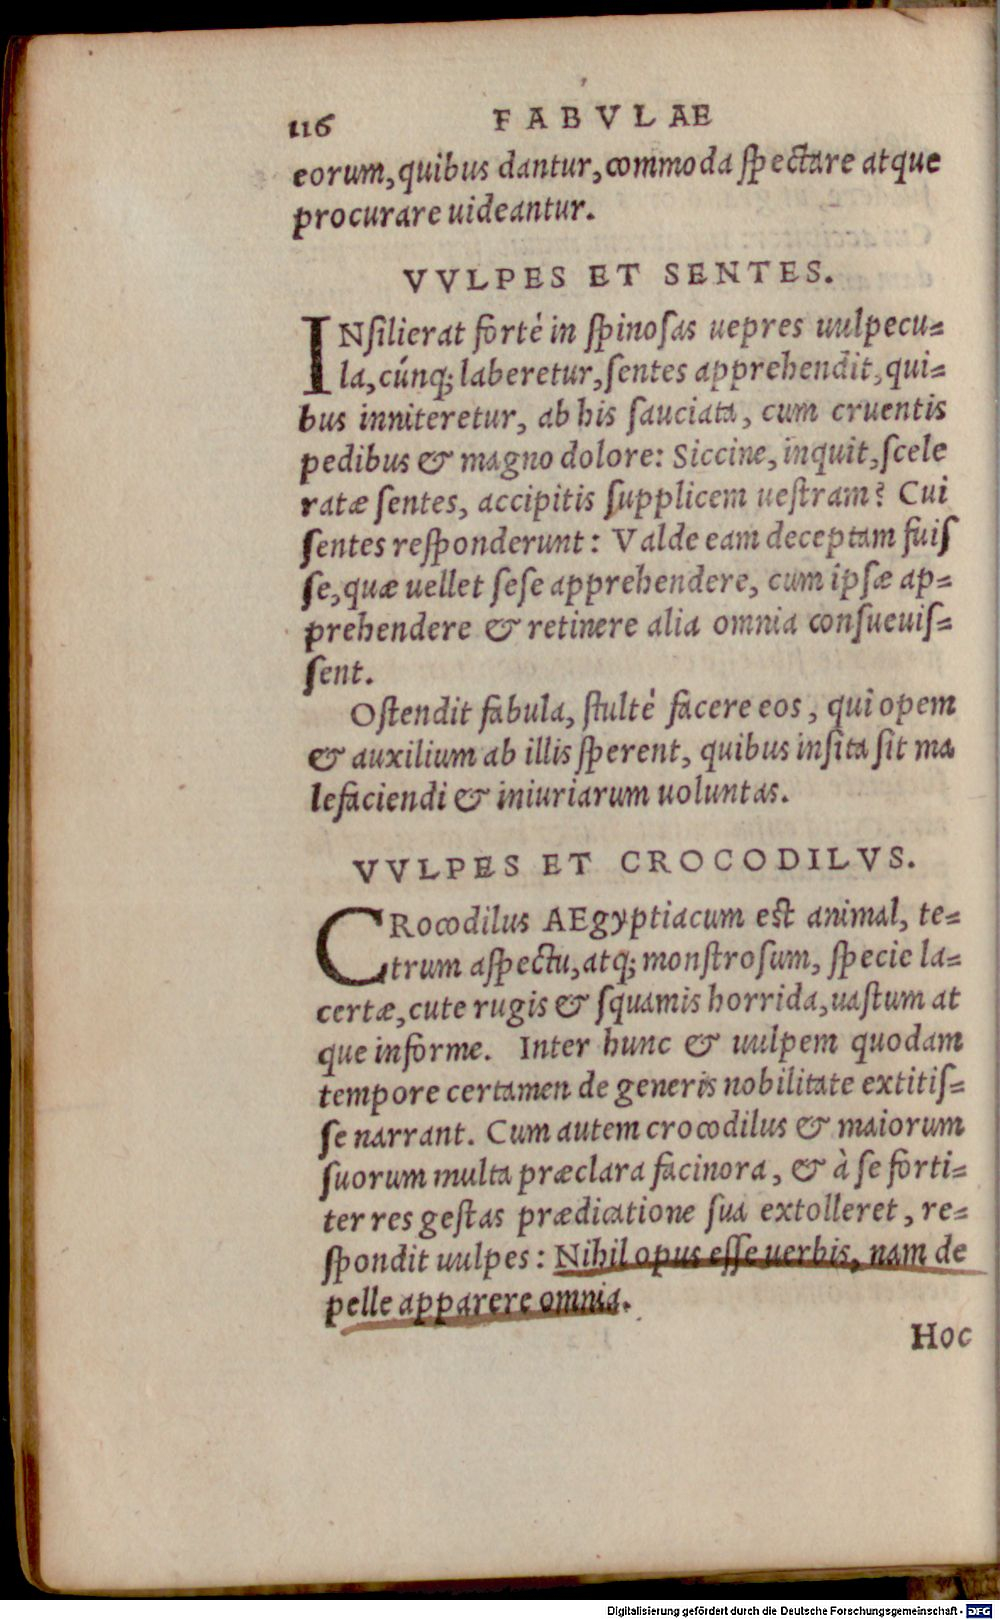 116 FABVLAE
eorum, quibus dantur, commoda ſpectare atque
procurare uideantur.
VVLPES ET SENTES.
INſilierat forté in ſpinoſas uepres uulpecu=
la, cúnq; laberetur, ſentes apprehendit, qui=
bus inniteretur, ab his ſauciata, cum cruentis
pedibus & magno dolore: Siccine, inquit, ſcele
ratæ ſentes, accipitis ſupplicem ueſtram? Cui
ſentes reſponderunt: Valde eam deceptam fuiſ
ſe, quæ uellet ſeſe apprehendere, cum ipſæ ap=
prehendere & retinere alia omnia conſueuiſ=
ſent.
Oſtendit fabula, ſtulté facere eos, qui opem
& auxilium ab illis ſperent, quibus inſita ſit ma
lefaciendi & iniuriarum uoluntas.
VVLPES ET CROCODILVS.
CRocodilus AEgyptiacum est animal, te=
trum aſpectu, atq; monſtroſum, ſpecie la=
certæ, cute rugis & ſquamis horrida, uaſtum at
que informe. Inter hunc & uulpem quodam
tempore certamen de generis nobilitate extitiſ=
ſe narrant. Cum autem crocodilus & maiorum
ſuorum multa præclara facinora, & à ſe forti=
ter res geſtas prædicatione ſua extolleret, re=
ſpondit uulpes: Nihil opus eſſe uerbis, nam de
pelle apparere omnia.
Hoc
Digitalisierung gefördert durch die Deutsche Forschungsgemeinschaft - DFG